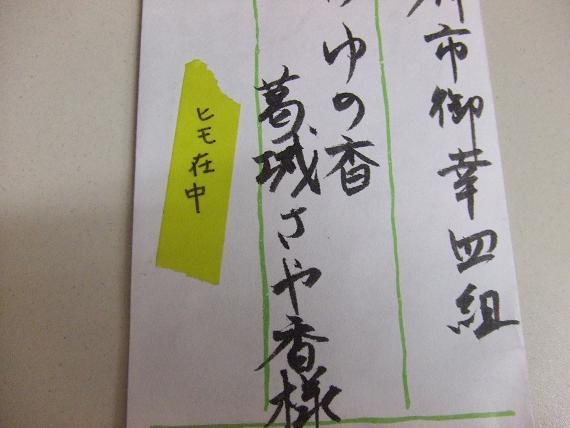 市御幸四組
ゆの香
葛城さや香様
ヒモ在中